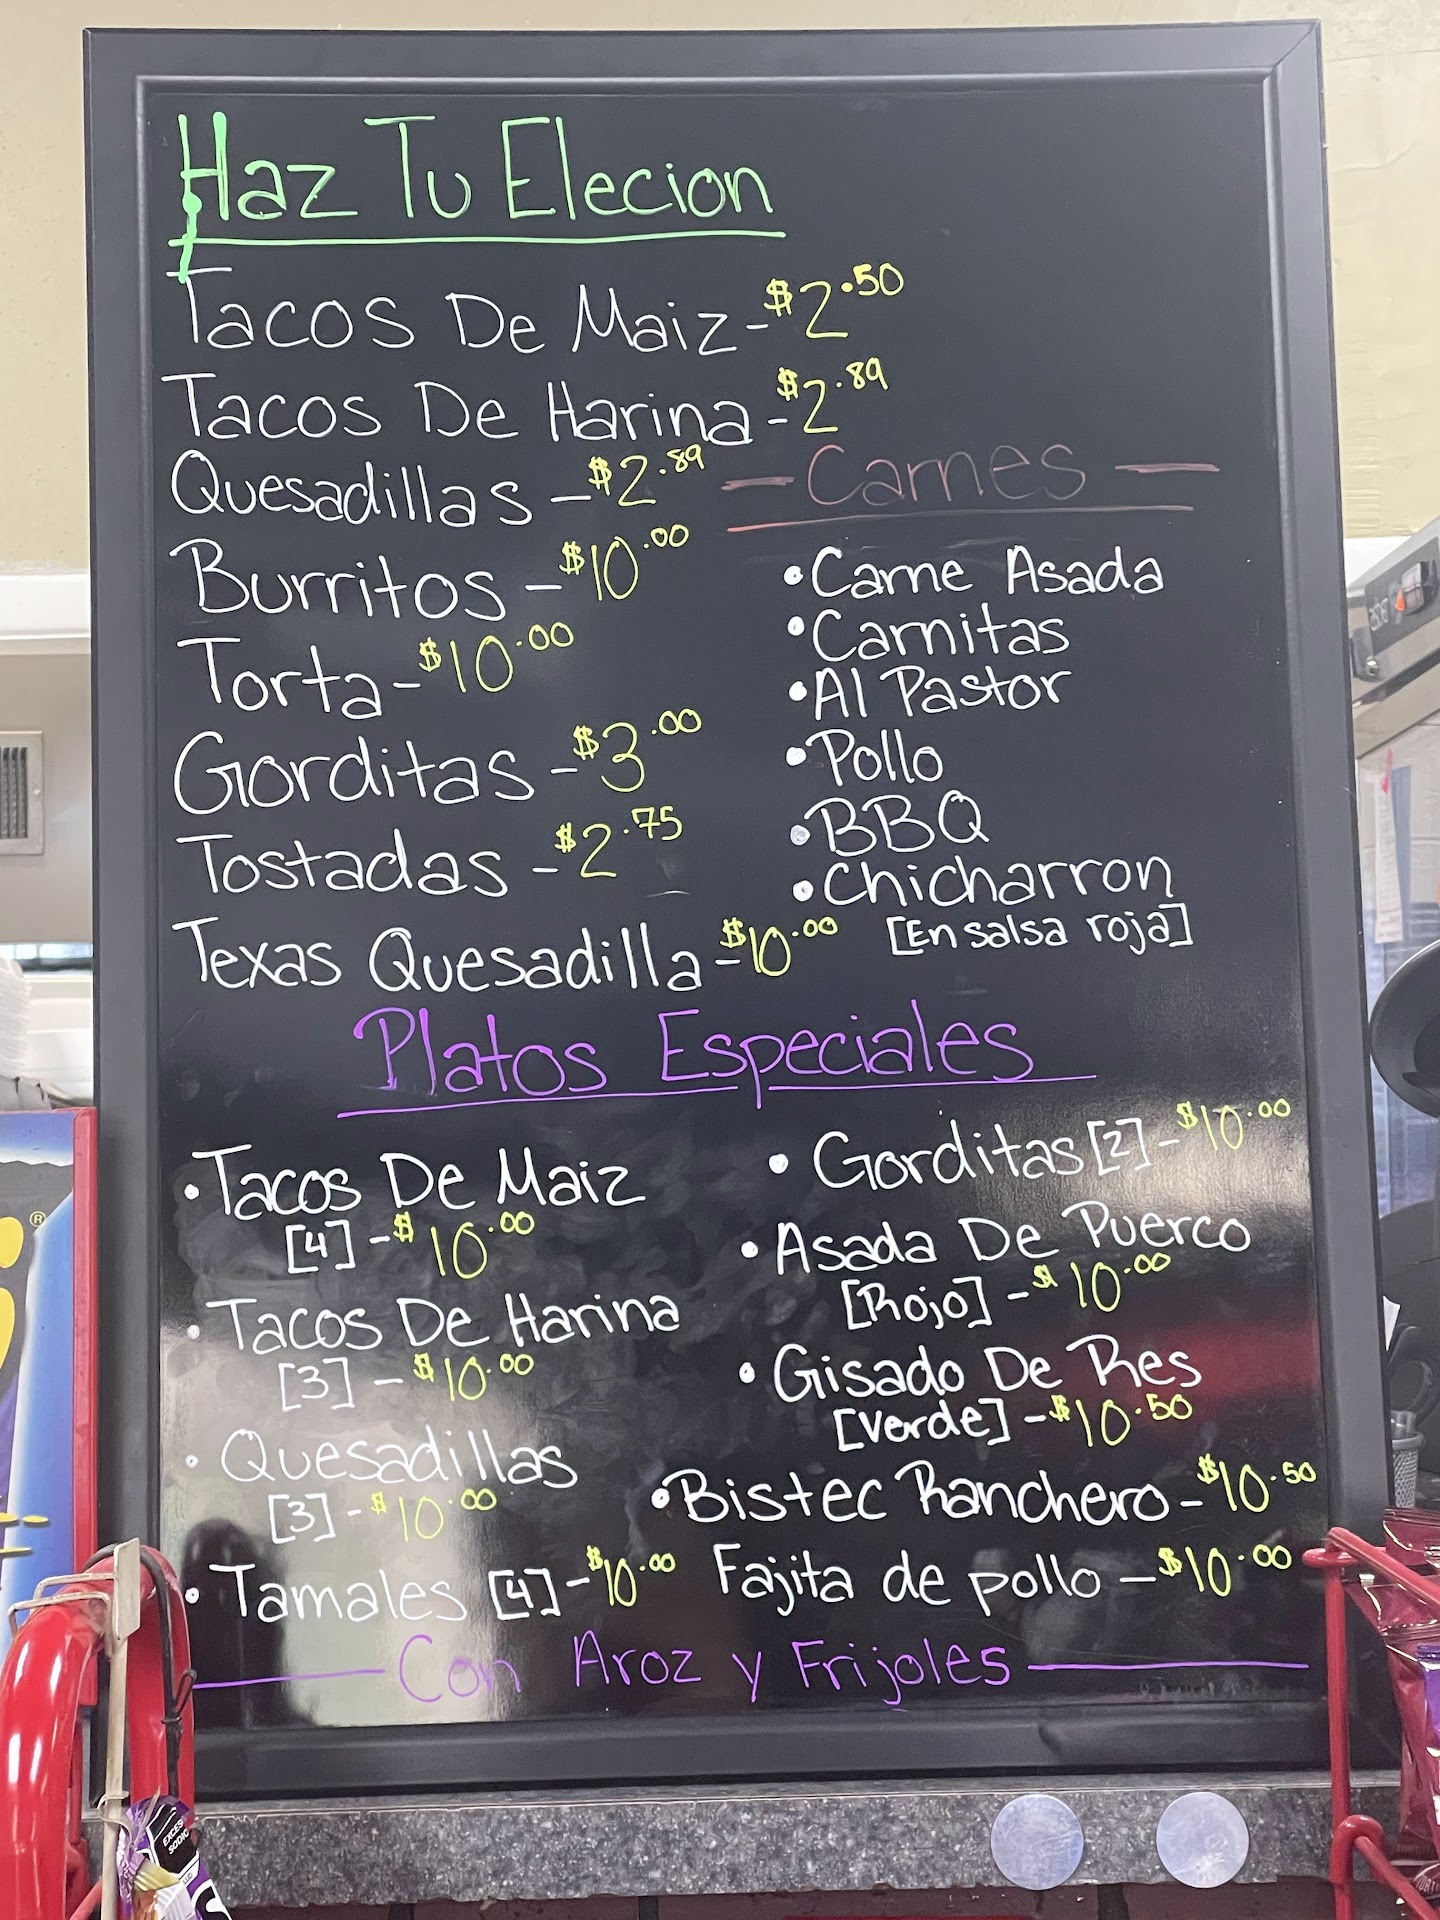 Haz Tu Elecion
Tacos De Maiz - $2.50
Tacos De Harina - $2.89
Quesadillas - $2.89
Burritos - $10.00
Torta - $10.00
Gorditas - $3.00
Tostadas - $2.75
Texas Quesadilla - $10.00
- Carnes -
• Carne Asada
• Carnitas
• Al Pastor
• Pollo
• BBQ
• Chicharron
[En salsa roja]
Platos Especiales
• Tacos De Maiz
[4] - $10.00
• Tacos De Harina
[3] - $10.00
• Quesadillas
[3] - $10.00
• Tamales [4] - $10.00
• Gorditas [2] - $10.00
• Asada De Puerco
[Rojo] - $10.00
• Gisado De Res
[Verde] - $10.50
• Bistec Ranchero - $10.50
Fajita de pollo - $10.00
Con Aroz y Frijoles
®
EXCESO